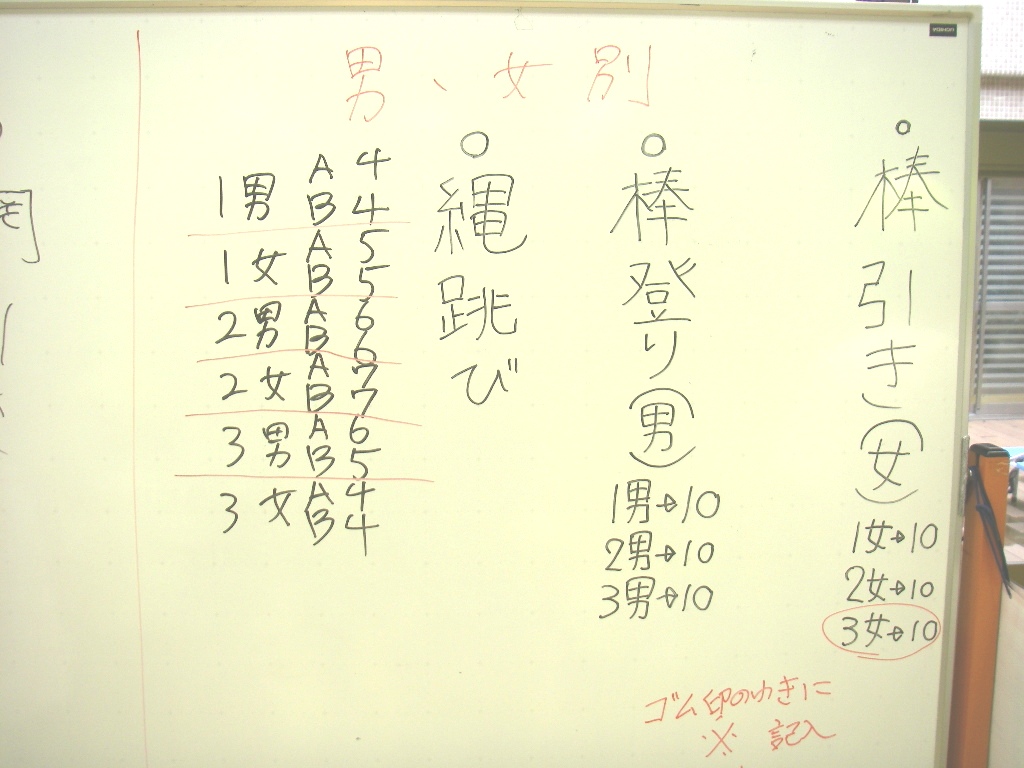 男、女別
○
棒引き(女)
1女→10
2女→10
3女→10
○
棒登り(男)
1男→10
2男→10
3男→10
○
縄跳び
1男 A 4
B 4
1女 A 5
B 5
2男 A 6
B 6
2女 A 7
B 7
3男 A 6
B 5
3女 A 4
B 4
ゴム印のわきに
※ 記入